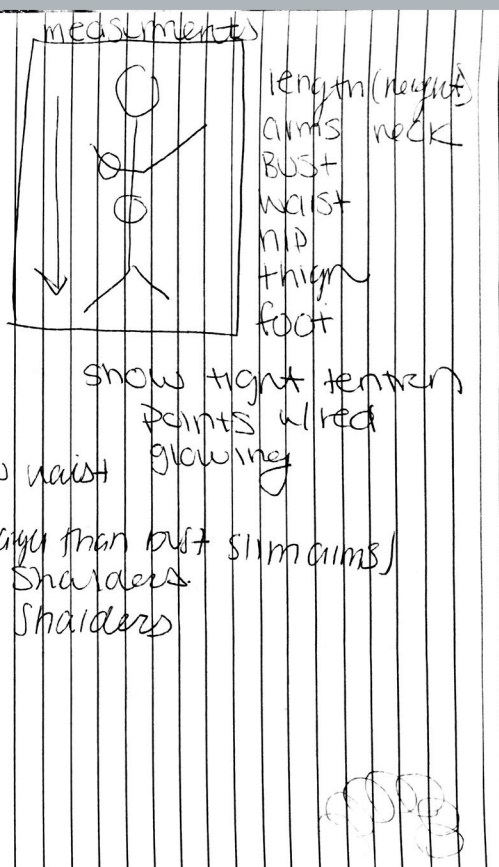 measurments
length (height)
arms neck
Bust
waist
hip
thigh
foot
show tight tention
points w/red
glowing
waist
than bust slim arms)
Shoulders.
Shoulders